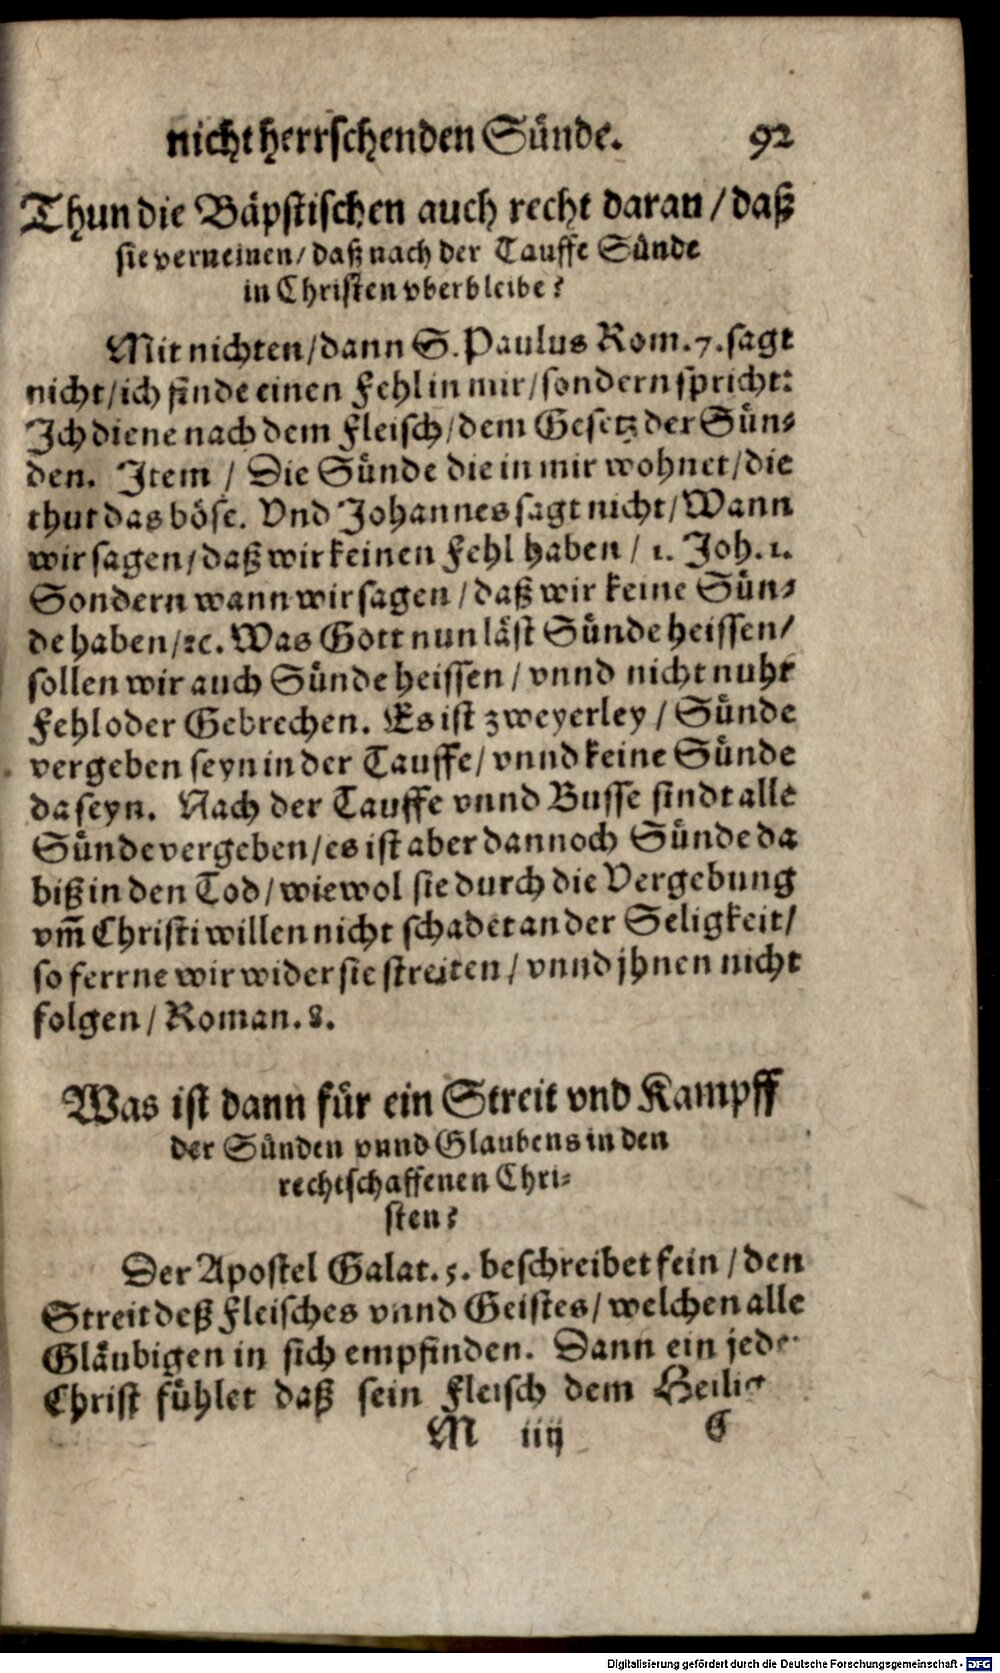 nicht herrschenden Sünde. 92
Thun die Bäpstischen auch recht daran / daß
sie verneinen / daß nach der Tauffe Sünde
in Christen vberbleibe?
Mit nichten / dann S. Paulus Rom. 7. sagt
nicht / ich finde einen Fehl in mir / sondern spricht:
Ich diene nach dem Fleisch / dem Gesetz der Sün-
den. Item / Die Sünde die in mir wohnet / die
thut das böse. Vnd Johannes sagt nicht / Wann
wir sagen / daß wir keinen Fehl haben / 1. Joh. 1.
Sondern wann wir sagen / daß wir keine Sün-
de haben / ꝛc. Was Gott nun läst Sünde heissen /
sollen wir auch Sünde heissen / vnnd nicht nuhr
Fehl oder Gebrechen. Es ist zweyerley / Sünde
vergeben seyn in der Tauffe / vnnd keine Sünde
da seyn. Nach der Tauffe vnnd Busse sindt alle
Sünde vergeben / es ist aber dannoch Sünde da
biß in den Tod / wiewol sie durch die Vergebung
vm̃ Christi willen nicht schadet an der Seligkeit /
so ferrne wir wider sie streiten / vnnd jhnen nicht
folgen / Roman. 8.
Was ist dann für ein Streit vnd Kampff
der Sünden vnnd Glaubens in den
rechtschaffenen Chri-
sten?
Der Apostel Galat. 5. beschreibet fein / den
Streit deß Fleisches vnnd Geistes / welchen alle
Gläubigen in sich empfinden. Dann ein jede
Christ fühlet daß sein Fleisch dem Heilig
M iiij G
Digitalisierung gefördert durch die Deutsche Forschungsgemeinschaft - DFG